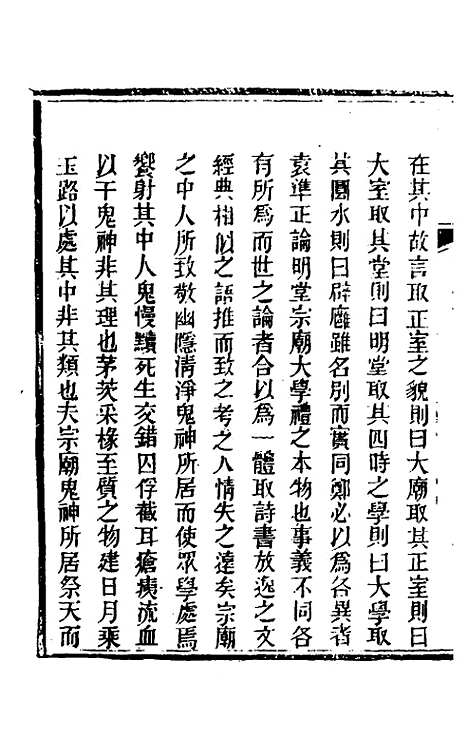 在其中故言取正室之貌則曰大廟取其正室則曰
大室取其堂則曰明堂取其四時之學則曰大學取
其圜水則曰辟廱雖名別而實同鄭必以爲各異者
袁準正論明堂宗廟大學禮之本物也事義不同各
有所爲而世之論者合以爲一體取詩書放逸之文
經典相似之語推而致之考之人情失之遠矣宗廟
之中人所致敬幽隱清淨鬼神所居而使眾學處焉
饗射其中人鬼慢黷死生交錯囚俘截耳瘡痍流血
以干鬼神非其理也茅茨采椽至質之物建日月乘
玉路以處其中非其類也夫宗廟鬼神所居祭天而